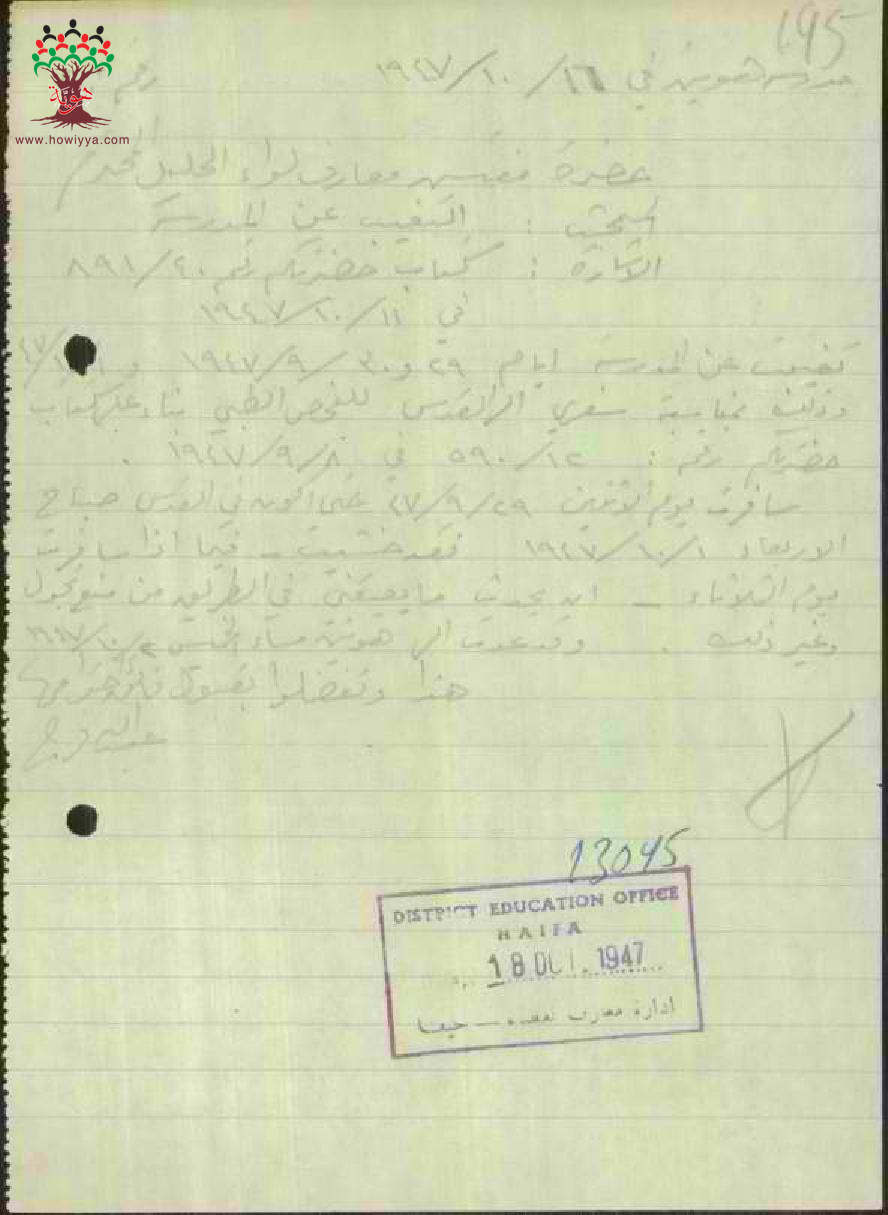 195
مدرسة هونين في ١٦/١٠/١٩٤٧
رقم
هوية
www.howiyya.com
حضرة مفتش معارف لواء الجليل المحترم
المبحث : التغيب عن المدرسة
الاشارة : كتاب حضرتكم رقم ٨٩١/٤٠
في ١١/١٠/١٩٤٧
تغيبت عن المدرسة ايام ٢٩ و ٣٠/٩/١٩٤٧ و
وذلك بمناسبة سفري الى القدس للفحص الطبي بناء على كتاب
حضرتكم رقم : ٥٩٠/١٢ في ٨/٩/١٩٤٧ .
سافرت يوم الاثنين ٢٩/٩/٤٧ حتى اكون في القدس صباح
الاربعاء ١/١٠/١٩٤٧ فقد خشيت ـ فيما اذا سافرت
يوم الثلاثاء ـ ان يحدث ما يعيقني في الطريق من منع تجول
وغير ذلك . وقد عدت الى هونين مساء الخميس ٢/١٠/١٩٤٧
هذا وتفضلوا بقبول فائق احترامي
13045
DISTRICT EDUCATION OFFICE
HAIFA
18 OCT. 1947
ادارة معارف مقاطعة — حيفا